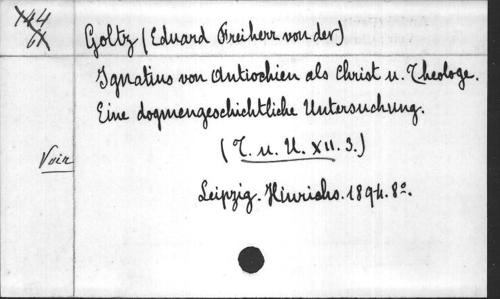 144
61
Goltz (Eduard Freiherr von der)
Ignatius von Antiochien als Christ u. Theologe.
Eine dogmengeschichtliche Untersuchung.
Voir
(T. u. U. XII. 3.)
Leipzig. Hinrichs. 1894. 8º.